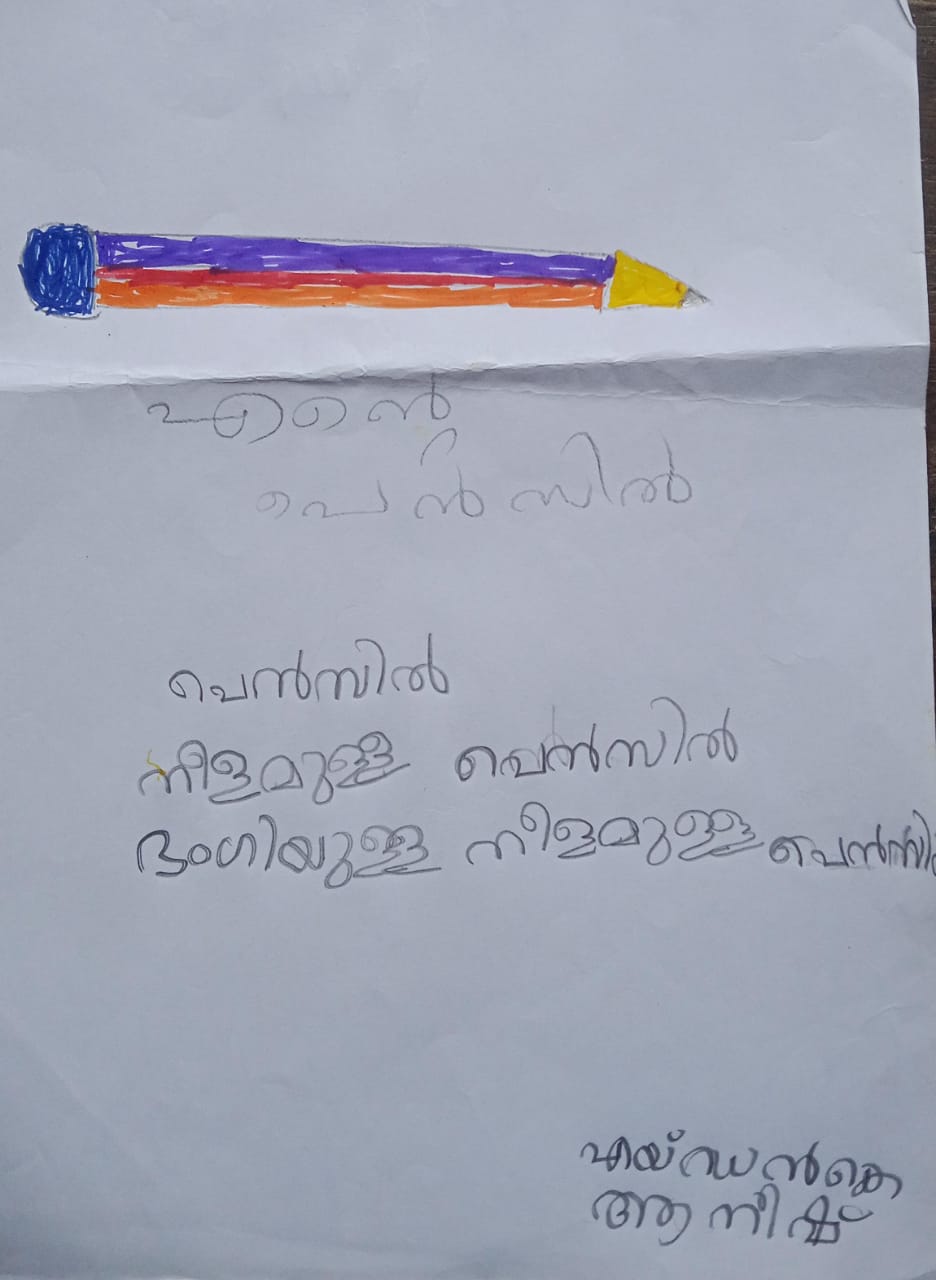 എന്റെ
പെൻസിൽ
പെൻസിൽ
നീളമുള്ള പെൻസിൽ
ഭംഗിയുള്ള നീളമുള്ള പെൻസി
എയ്ഡൻകെ
ആനീഷ്